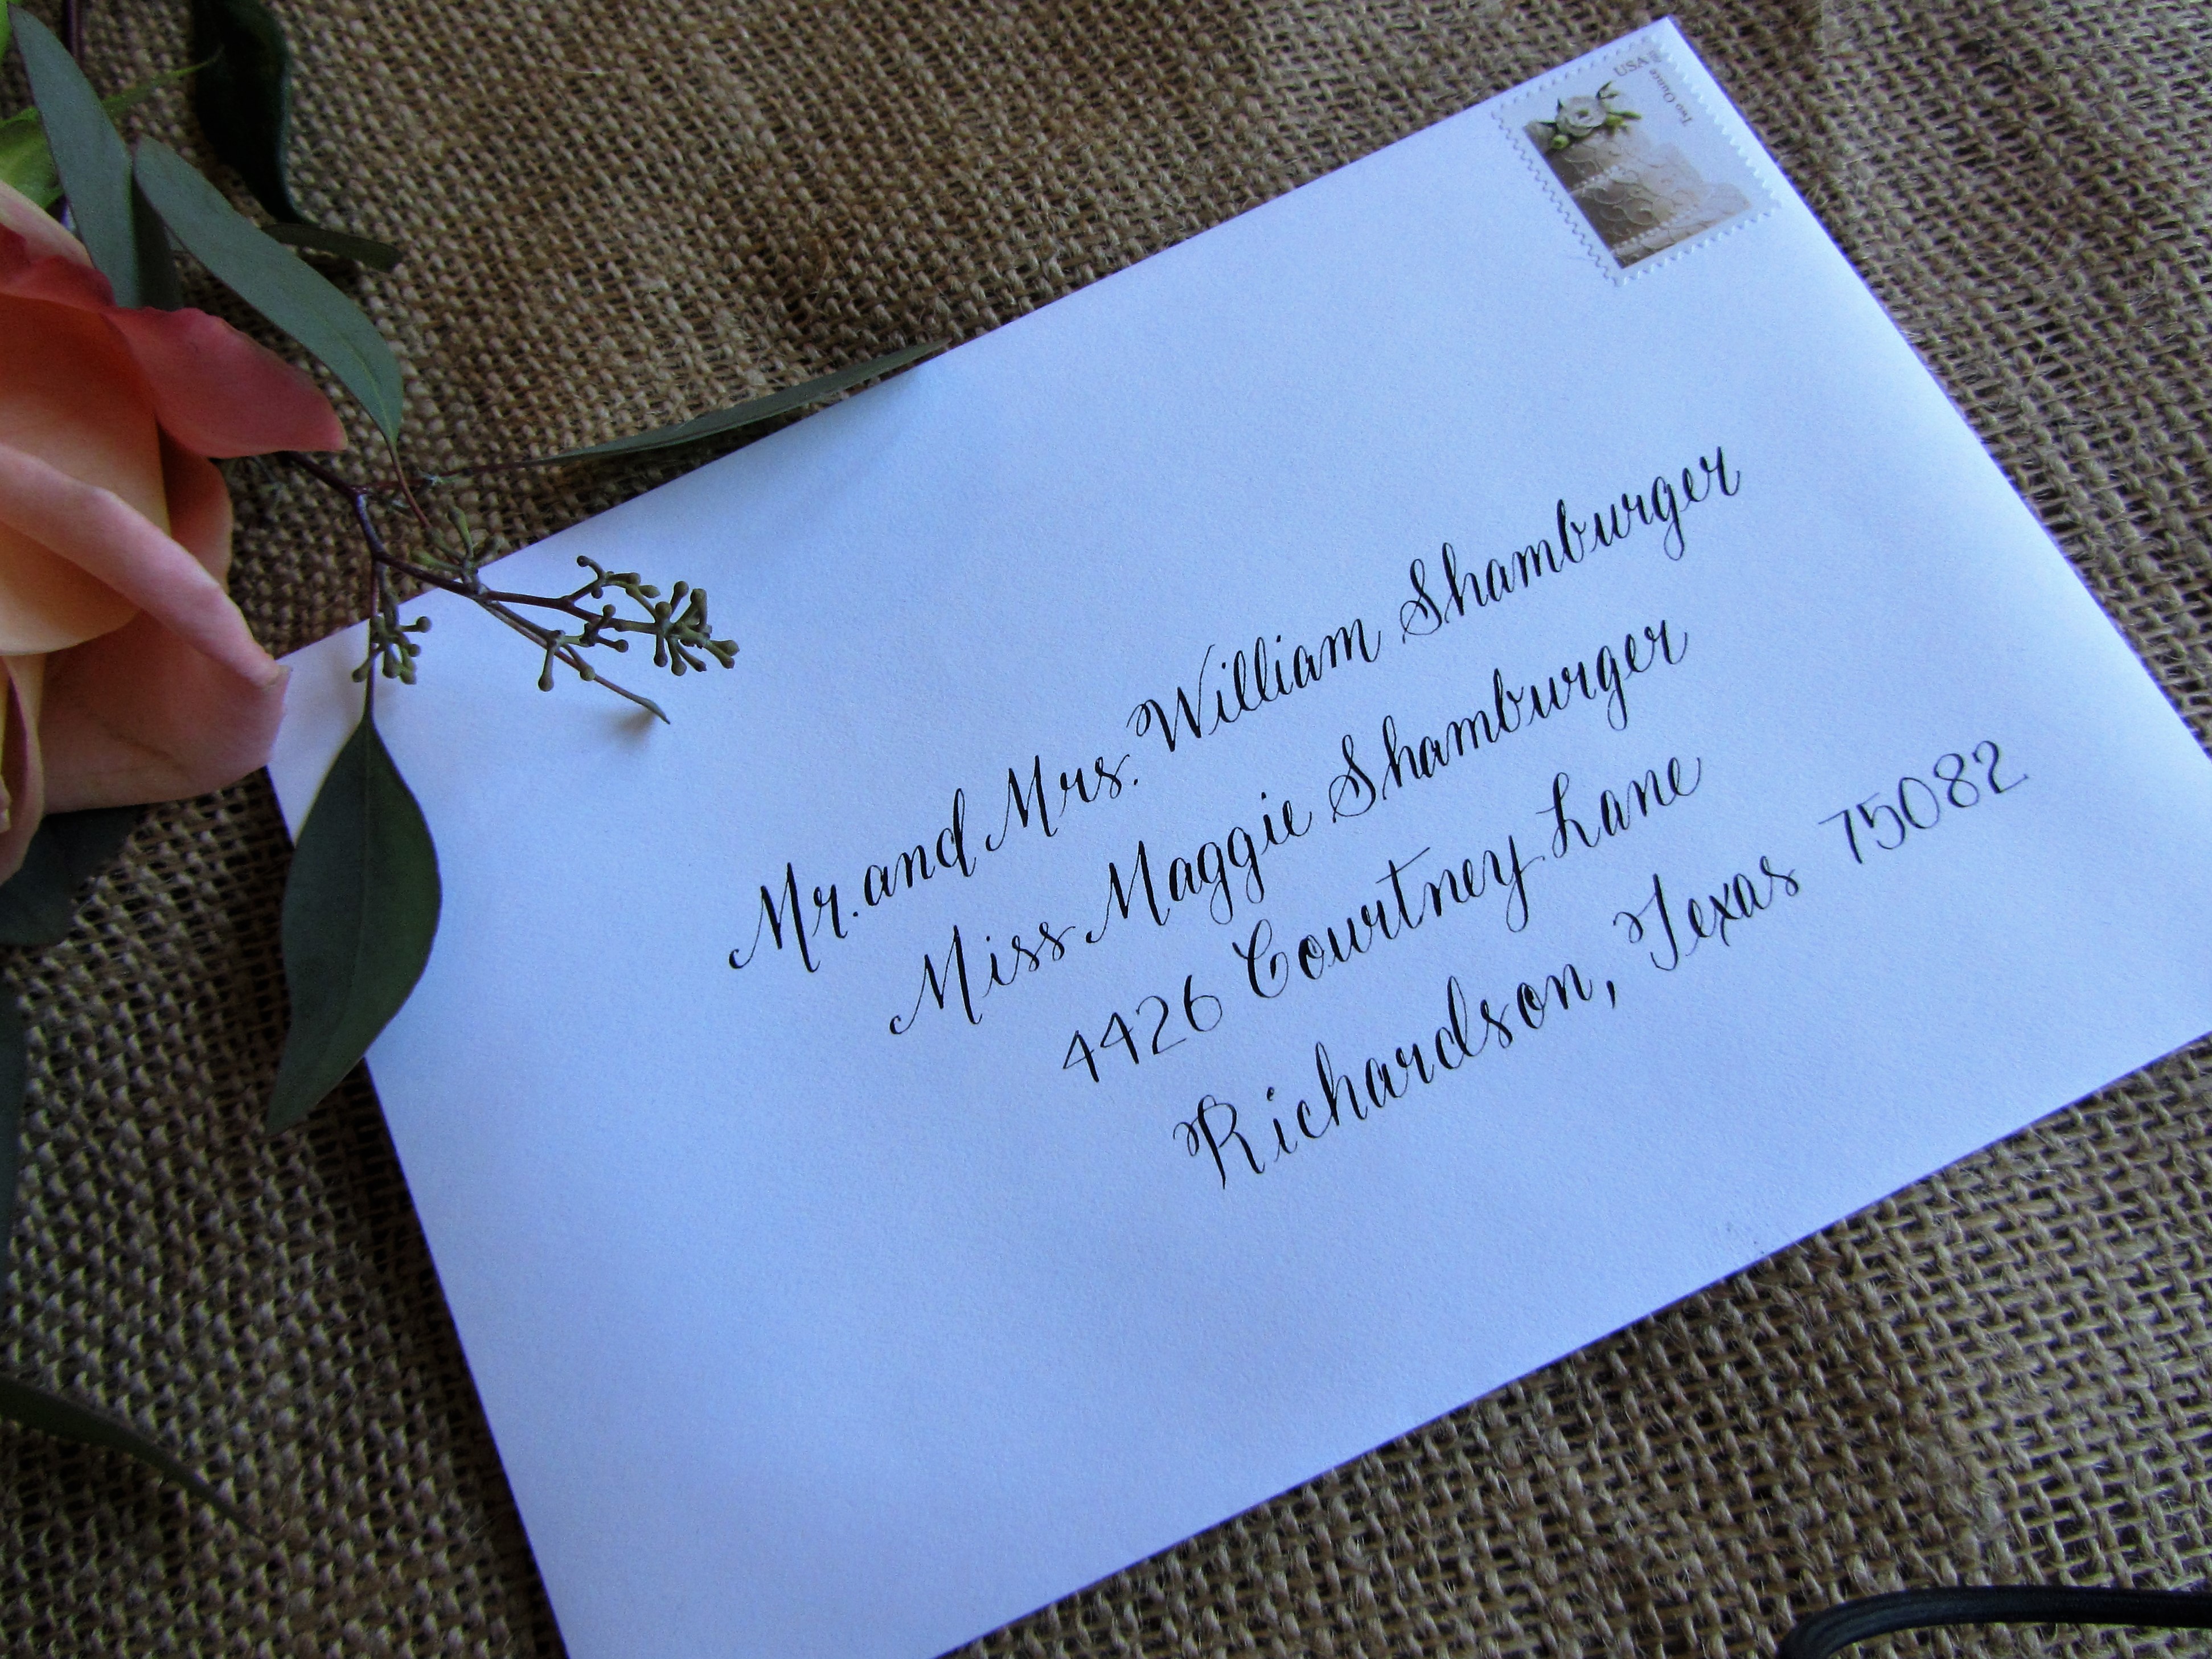 USA
Two Ounce
Mr. and Mrs. William Shamburger
Miss Maggie Shamburger
4426 Courtney Lane
Richardson, Texas 75082